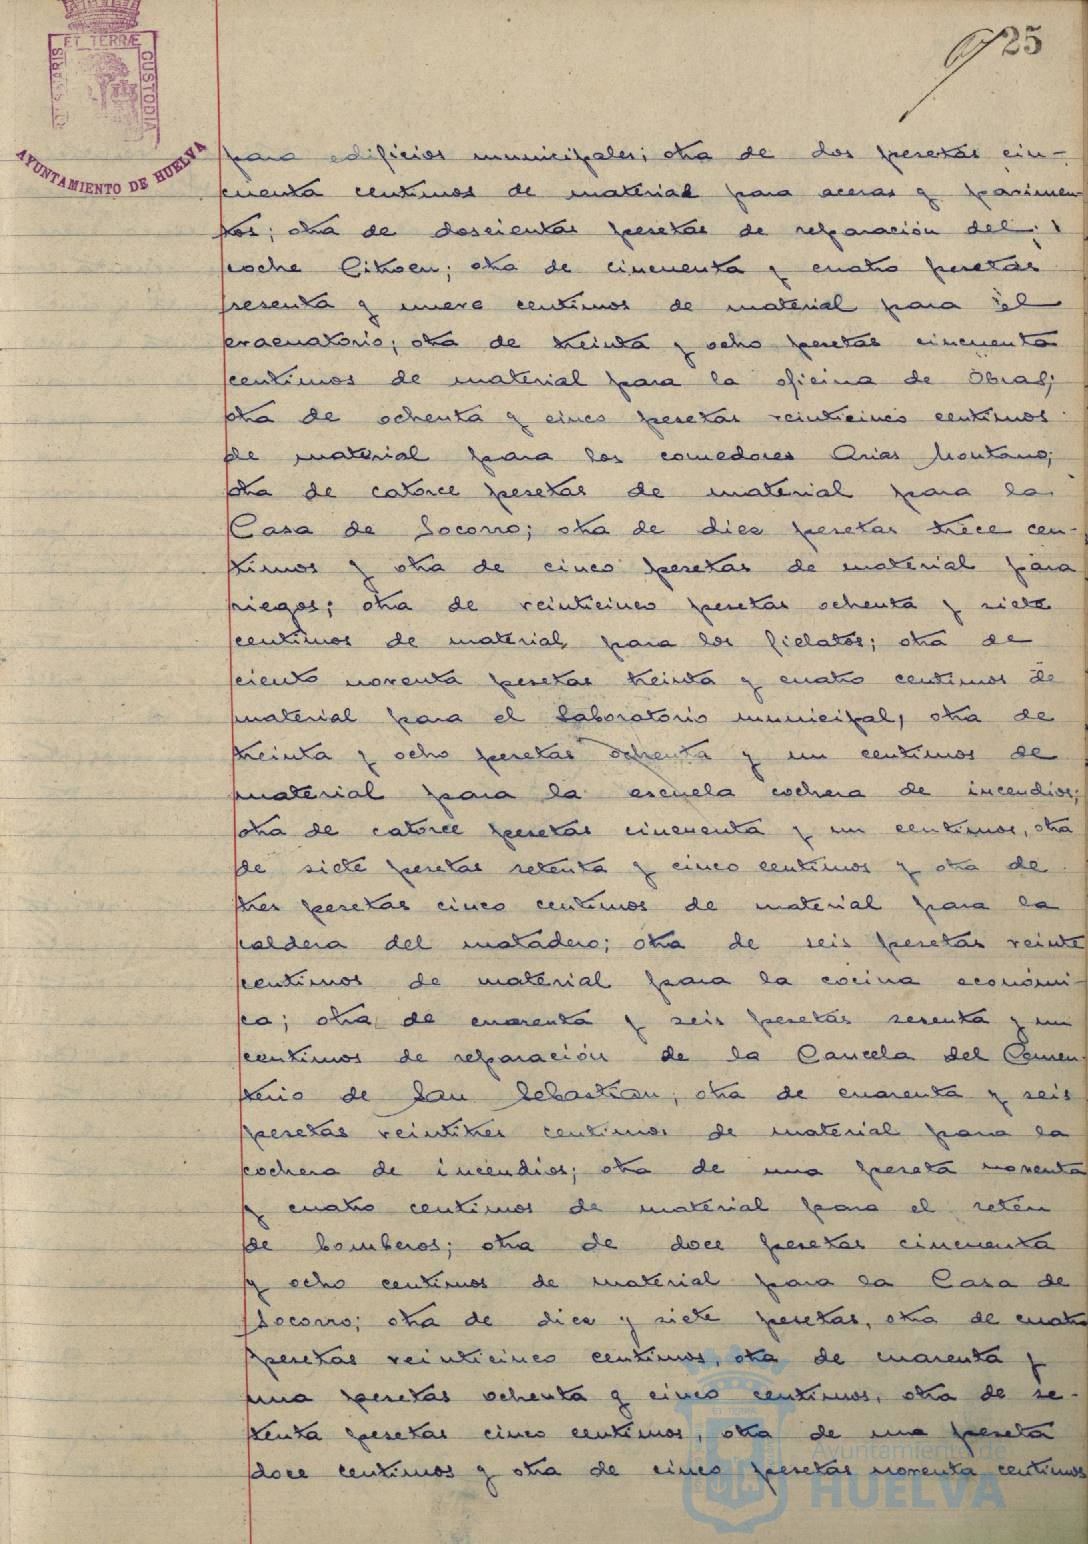 25
ET TERRÆ
CUSTODIA
AYUNTAMIENTO DE HUELVA
para edificios municipales; otra de dos pesetas cin-
cuenta centimos de material para aceras y pavimen-
tos; otra de doscientas pesetas de reparación del
coche Citroen; otra de cincuenta y cuatro pesetas
sesenta y nueve centimos de material para el
evacuatorio; otra de treinta y ocho pesetas cincuenta
centimos de material para la oficina de Obras;
otra de ochenta y cinco pesetas veinticinco centimos
de material para los comedores Arias Montano;
otra de catorce pesetas de material para la
Casa de Socorro; otra de diez pesetas trece cen-
timos y otra de cinco pesetas de material para
riegos; otra de veinticinco pesetas ochenta y siete
centimos de material para los fielatos; otra de
ciento noventa pesetas treinta y cuatro centimos de
material para el laboratorio municipal, otra de
treinta y ocho pesetas ochenta y un centimos de
material para la escuela cochera de incendios;
otra de catorce pesetas cincuenta y un centimos, otra
de siete pesetas setenta y cinco centimos y otra de
tres pesetas cinco centimos de material para la
caldera del matadero; otra de seis pesetas veinte
centimos de material para la cocina económi-
ca; otra de cuarenta y seis pesetas sesenta y un
centimos de reparación de la Cancela del Cemen-
terio de San Sebastian; otra de cuarenta y seis
pesetas veintitres centimos de material para la
cochera de incendios; otra de una peseta noventa
y cuatro centimos de material para el retén
de bomberos; otra de doce pesetas cincuenta
y ocho centimos de material para la Casa de
Socorro; otra de diez y siete pesetas, otra de cuatro
pesetas veinticinco centimos, otra de cuarenta y
una pesetas ochenta y cinco centimos, otra de se-
tenta pesetas cinco centimos, otra de una peseta
doce centimos y otra de cinco pesetas noventa centimos
Ayuntamiento de
HUELVA